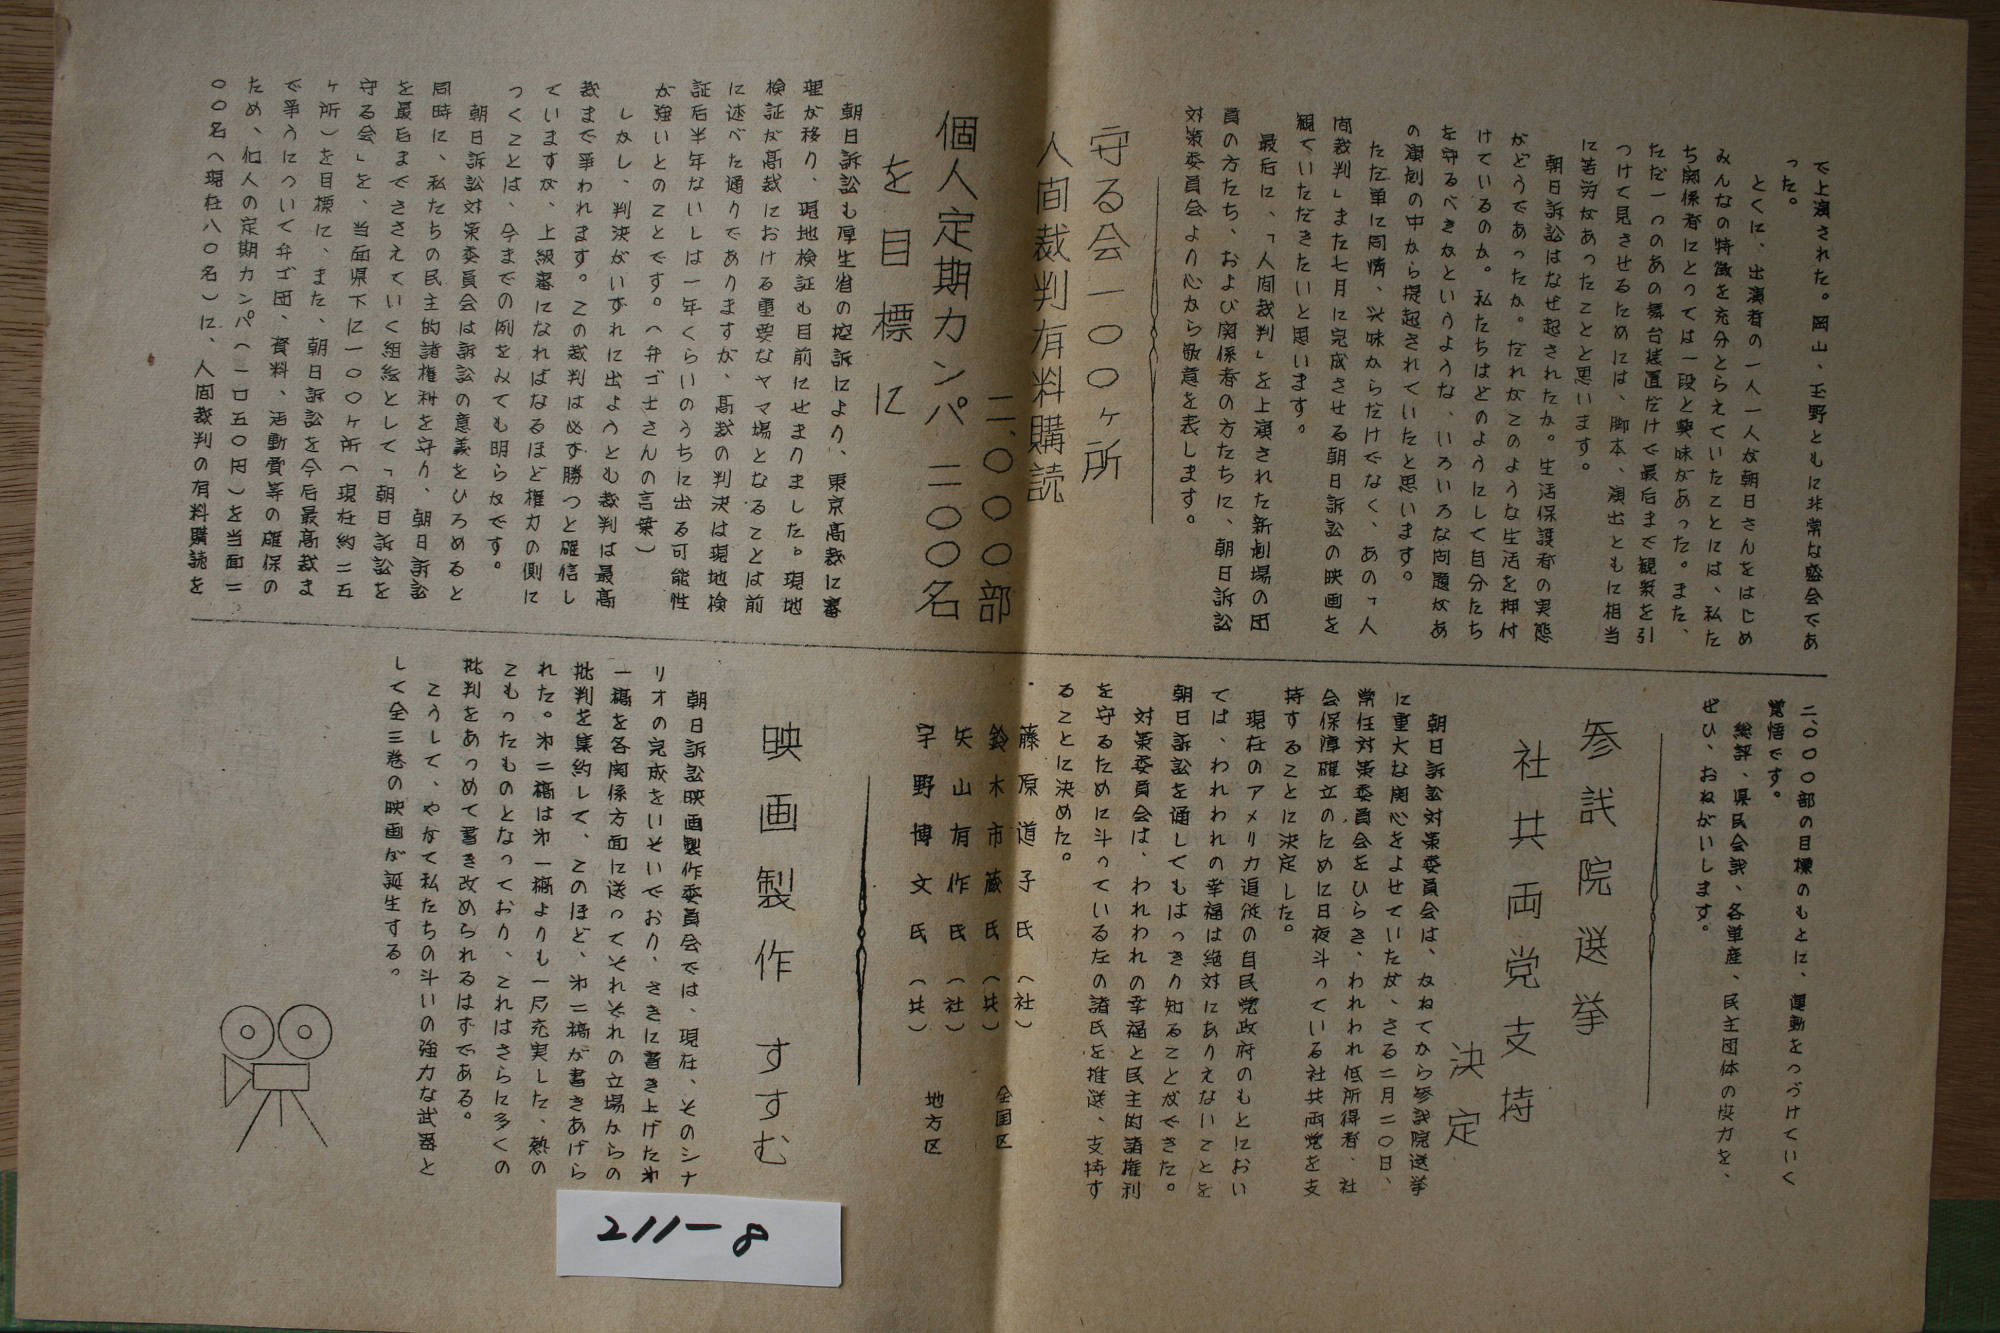 で上演された。岡山、玉野ともに非常な盛会であ
った。
とくに、出演者の一人一人が朝日さんをはじめ
みんなの特徴を充分とらえていたことには、私た
ち関係者にとっては一段と興味があった。また、
ただ一つのあの舞台装置だけで最后まで観衆を引
つけて見させるためには、脚本、演出ともに相当
に苦労があったことと思います。
朝日訴訟はなぜ起されたか。生活保護者の実態
がどうであったか。だれがこのような生活を押付
けているのか。私たちはどのようにして自分たち
を守るべきかというような、いろいろな问題があ
の演劇の中から提起されていたと思います。
ただ単に同情、興味からだけでなく、あの「人
间裁判」また七月に完成させる朝日訴訟の映画を
観ていただきたいと思います。
最后に、「人间裁判」を上演された新劇場の団
員の方たち、および関係者の方たちに、朝日訴訟
対策委員会より心から敬意を表します。
守る会一〇〇ヶ所
人间裁判有料購読
二、〇〇〇部
個人定期カンパ二〇〇名
を目標に
朝日訴訟も厚生省の控訴により、東京高裁に審
理が移り、現地検証も目前にせまりました。現地
検証が高裁における重要なヤマ場となることは前
に述べた通りでありますが、高裁の判決は現地検
証后半年ないしは一年くらいのうちに出る可能性
が強いとのことです。（弁ゴ士さんの言葉）
しかし、判決がいずれに出ようとも裁判は最高
裁まで争われます。この裁判は必ず勝つと確信し
ていますが、上級審になればなるほど権力の側に
つくことは、今までの例をみても明らかです。
朝日訴訟対策委員会は訴訟の意義をひろめると
同時に、私たちの民主的諸権利を守り、朝日訴訟
を最后までささえていく組絵として「朝日訴訟を
守る会」を、当面県下に一〇〇ヶ所（現在約二五
ヶ所）を目標に、また、朝日訴訟を今后最高裁ま
で争うについて弁ゴ団、資料、活動費等の確保の
ため、個人の定期カンパ（一口五〇円）を当面二
〇〇名（現在八〇名）に、人间裁判の有料購読を
二、〇〇〇部の目標のもとに、運動をつづけていく
覚悟です。
総評、県民会議、各単産、民主団体の皮力を、
ぜひ、おねがいします。
参議院選挙
社共両党支持
決定
朝日訴訟対策委員会は、かねてから参議院選挙
に重大な関心をよせていたが、さる二月二〇日、
常任対策委員会をひらき、われわれ低所得者、社
会保障確立のために日夜斗っている社共両党を支
持することに決定した。
現在のアメリカ追従の自民党政府のもとにおい
ては、われわれの幸福は絶対にありえないことを
朝日訴訟を通してもはっきり知ることができた。
対策委員会は、われわれの幸福と民主的諸権利
を守るために斗っている左の諸氏を推送、支持す
ることに決めた。
藤原道子氏（社）
鈴木市蔵氏（共）全国区
矢山有作氏（社）
宇野博文氏（共）地方区
映画製作すすむ
朝日訴訟映画製作委員会では、現在、そのシナ
リオの完成をいそいでおり、さきに書き上げた㐧
一稿を各関係方面に送ってそれぞれの立場からの
批判を集約して、このほど、㐧二稿が書きあげら
れた。㐧二稿は㐧一稿よりも一尺充実した、熱の
こもったものとなっており、これはさらに多くの
批判をあつめて書き改められるはずである。
こうして、やがて私たちの斗いの強力な武器と
して全三巻の映画が誕生する。
211-8